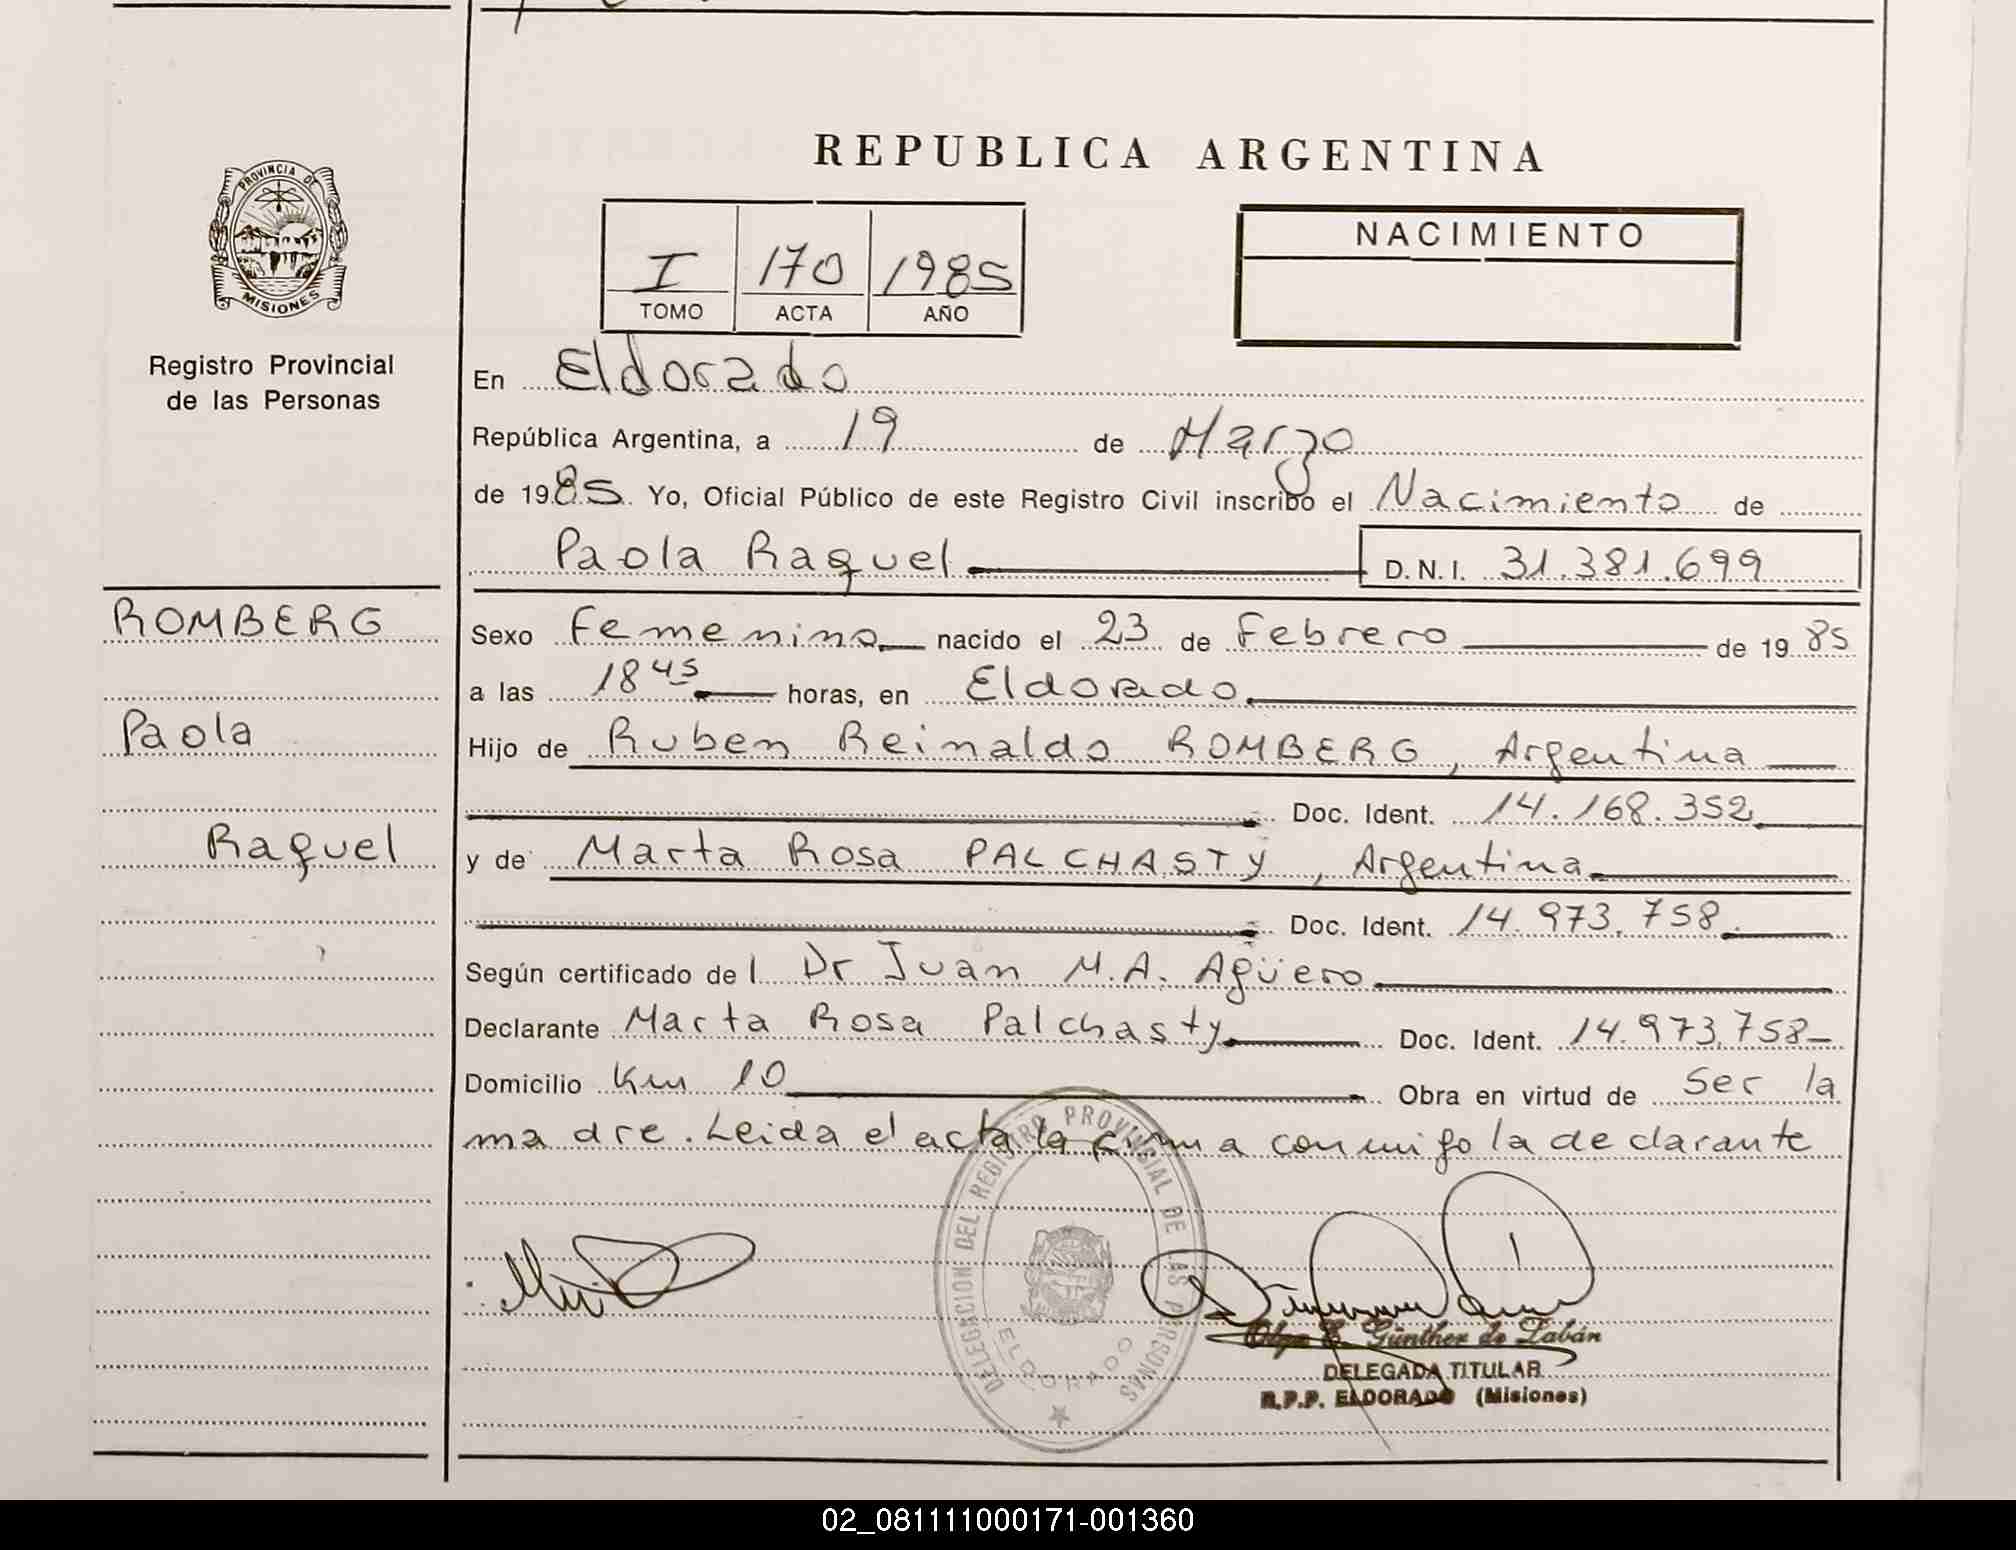 PROVINCIA DE
MISIONES
Registro Provincial
de las Personas
REPUBLICA ARGENTINA
I 170 1985
TOMO ACTA AÑO
NACIMIENTO
En Eldorado
República Argentina, a 19 de Marzo
de 1985 Yo, Oficial Público de este Registro Civil inscribo el Nacimiento de
Paola Raquel D.N.I. 31.381.699
ROMBERG
Paola
Raquel
Sexo Femenino nacido el 23 de Febrero de 1985
a las 18 45 horas, en Eldorado
Hijo de Ruben Reinaldo ROMBERG, Argentina
Doc. Ident. 14.168.352
y de Marta Rosa PALCHASTY, Argentina
Doc. Ident. 14.973.758
Según certificado de l Dr Juan M.A. Agüero
Declarante Marta Rosa Palchasty Doc. Ident. 14.973.758
Domicilio Km 10 Obra en virtud de Ser la
madre. Leida el acta la firma conmigo la declarante
DELEGACION DEL REGISTRO PROVINCIAL DE LAS PERSONAS
ELDORADO
Olga E. Günther de Labán
DELEGADA TITULAR
R.P.P. ELDORADO (Misiones)
02_081111000171-001360